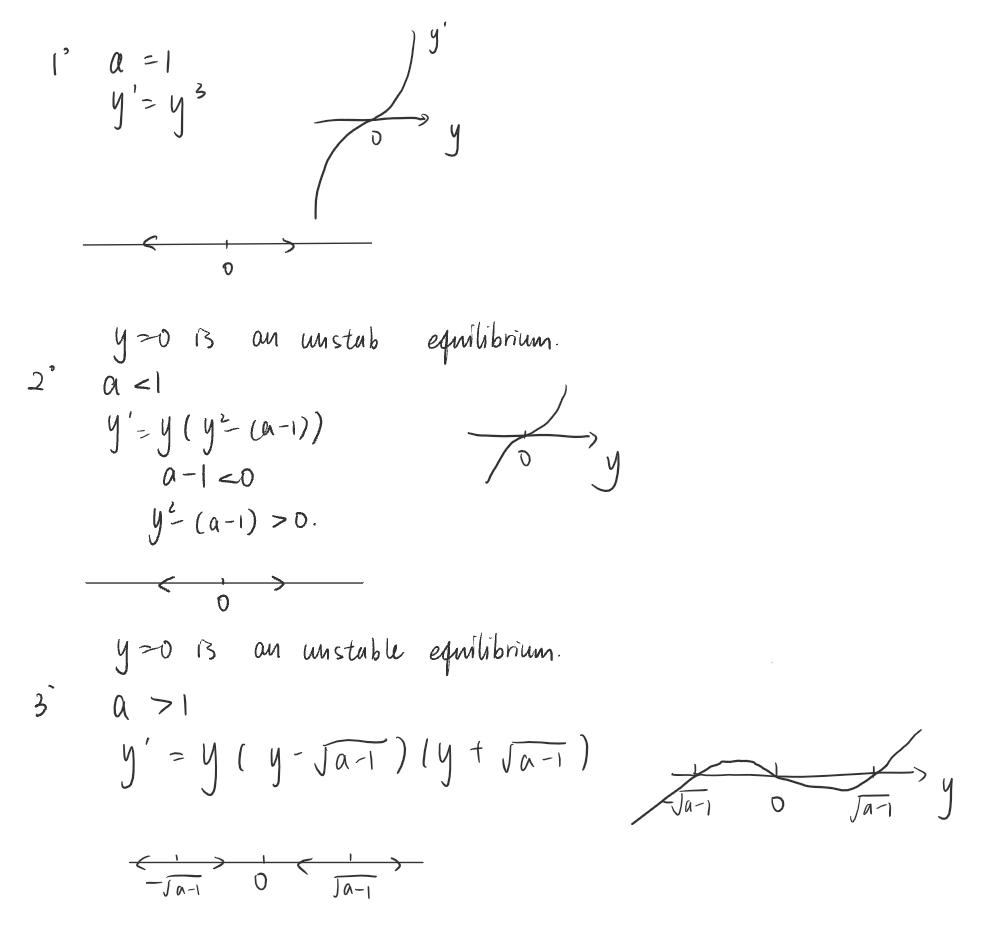 1° a = 1
y' = y³
y'
0
y
0
y=0 is an unstab equilibrium.
2° a < 1
y' = y(y² - (a-1))
a-1 < 0
y² - (a-1) > 0.
0
y
0
y=0 is an unstable equilibrium.
3° a > 1
y' = y(y-√(a-1))(y+√(a-1))
-√(a-1) 0 √(a-1) y
-√(a-1) 0 √(a-1)